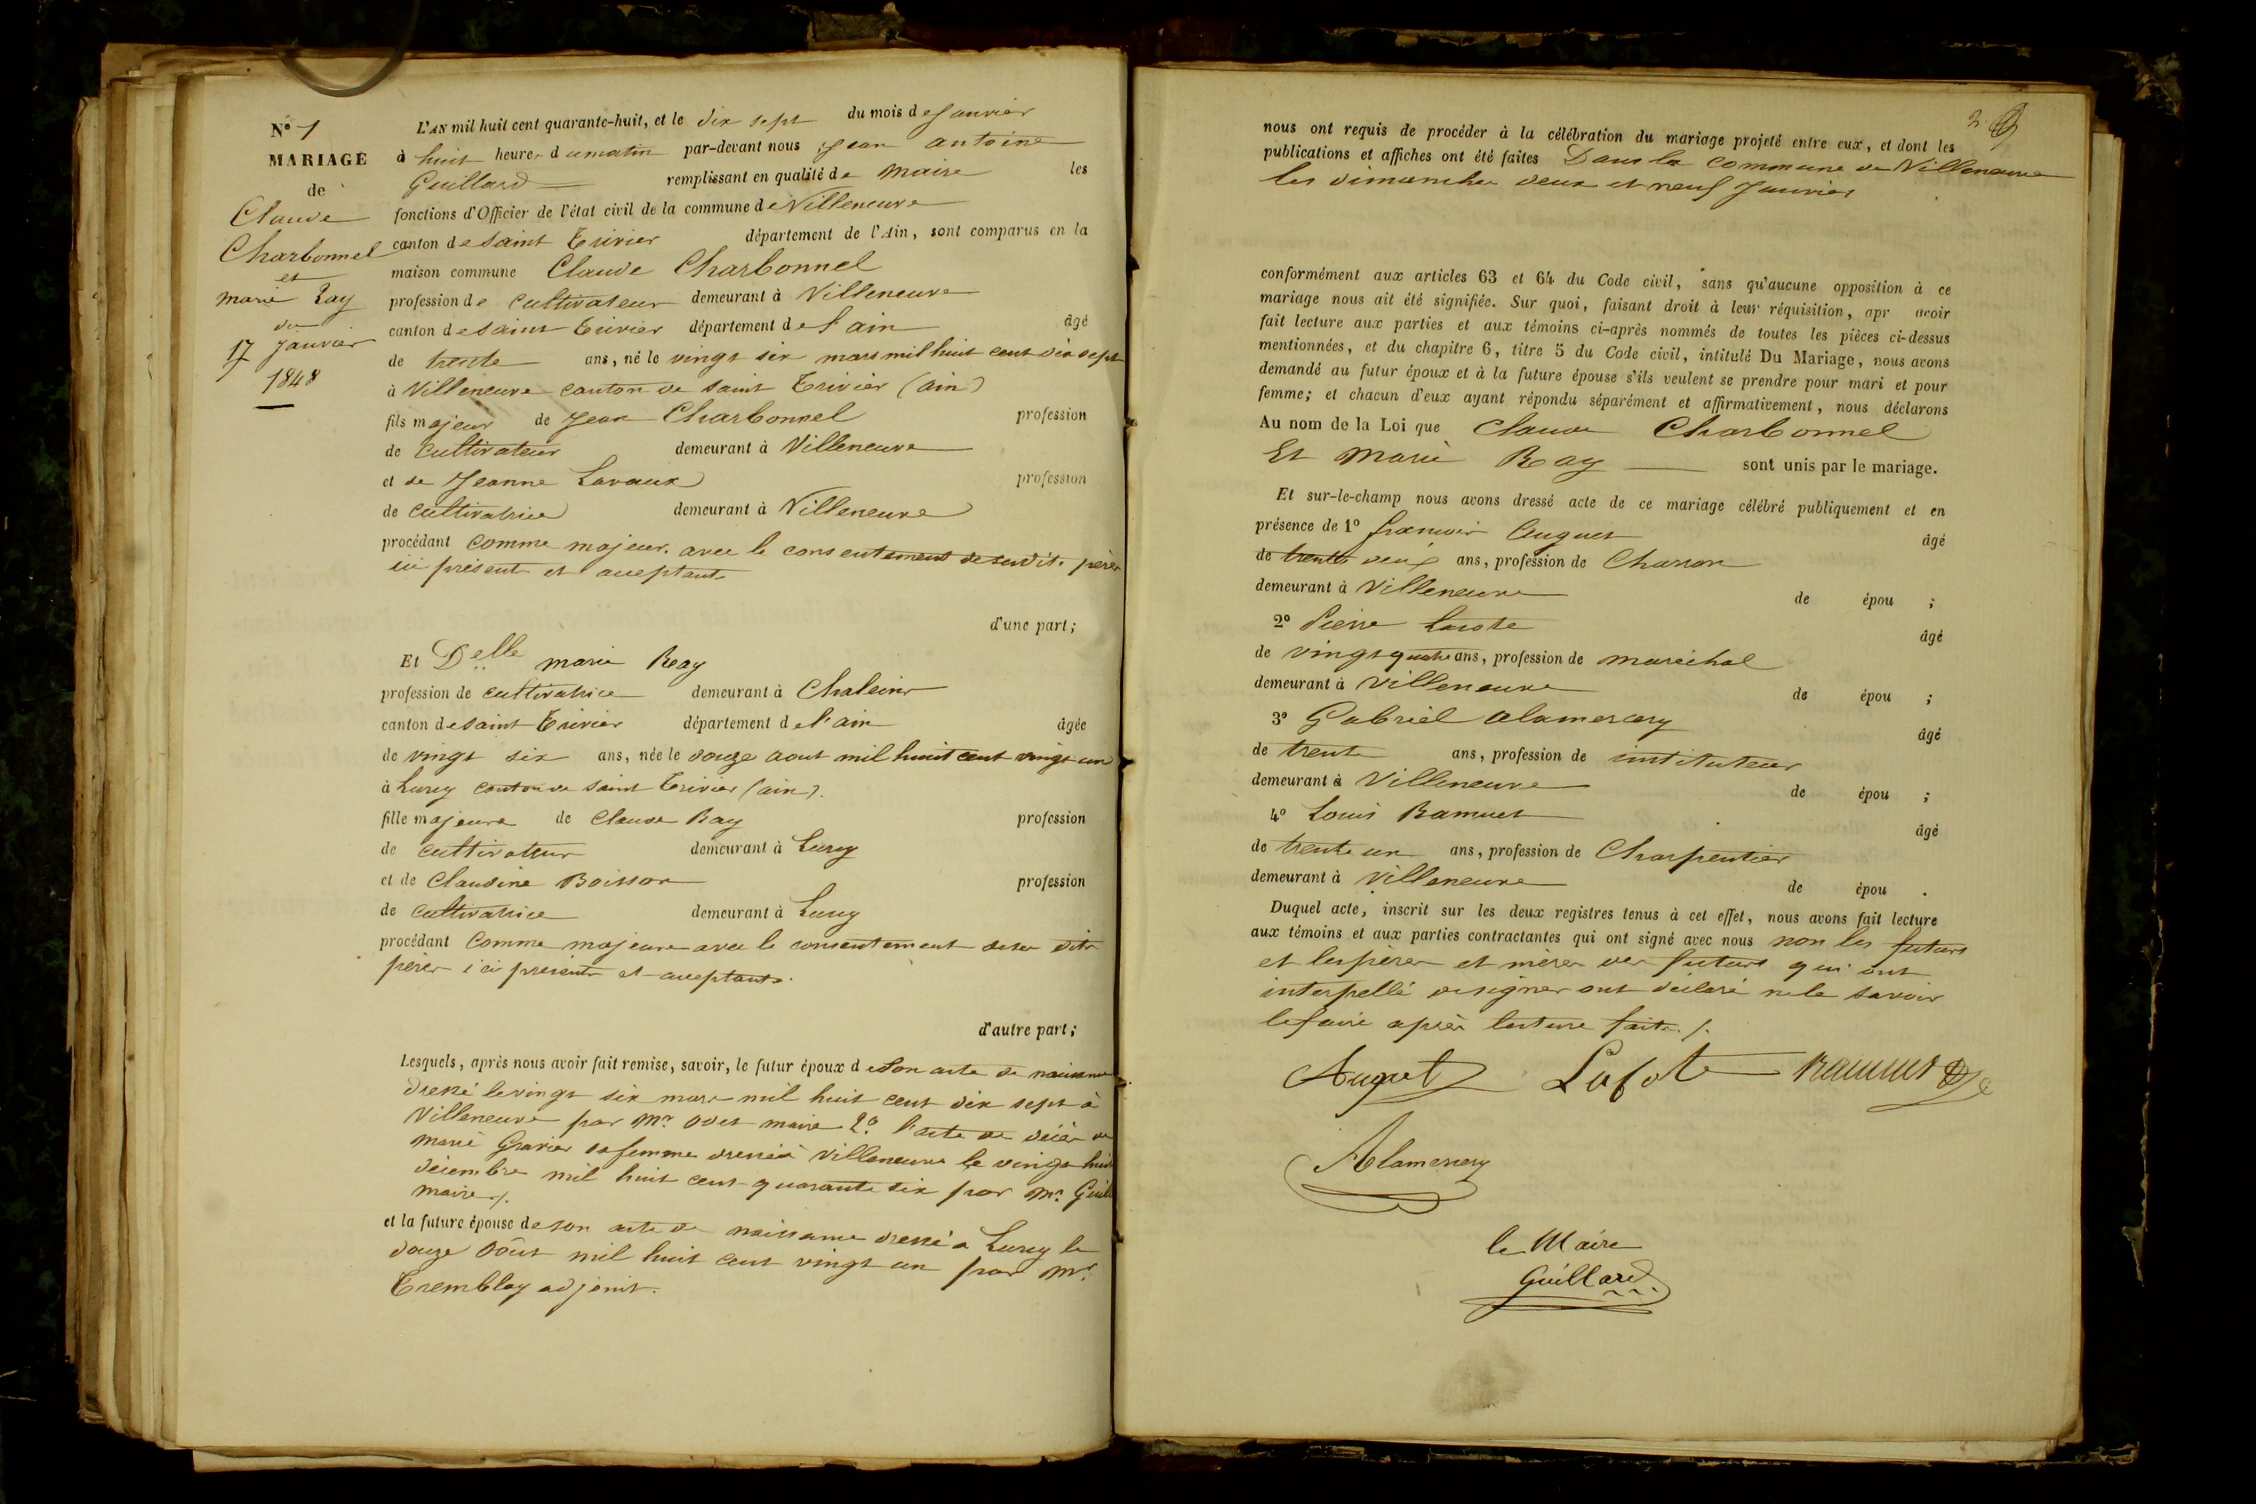 N° 1
MARIAGE
de
Claude
Charbonnel
et
marie Ray
du
17 janvier
1848
L'AN mil huit cent quarante-huit, et le dix sept du mois de Janvier
à huit heures du matin par-devant nous Jean antoine
Guillard remplissant en qualité de maire les
fonctions d'Officier de l'état civil de la commune de Villeneuve
canton de saint Trivier département de l'Ain, sont comparus en la
maison commune Claude Charbonnel
profession de cultivateur demeurant à Villeneuve
canton de saint Trivier département de l'ain âgé
de trente ans, né le vingt six mars mil huit cent dix sept
à Villeneuve canton de saint Trivier (ain)
fils majeur de Jean Charbonnel profession
de cultivateur demeurant à Villeneuve
et de Jeanne Lavaux profession
de cultivatrice demeurant à Villeneuve
procédant comme majeur. avec le consentement de sesdit. père
ici présent et acceptant
d'une part;
Et Delle marie Ray
profession de cultivatrice demeurant à Chaleins
canton de saint Trivier département de l'ain âgée
de vingt six ans, née le douze aout mil huit cent vingt un
à Lurcy canton de saint Trivier (ain).
fille majeure de Claude Ray profession
de cultivateur demeurant à Lurcy
et de Claudine Boisson profession
de cultivatrice demeurant à Lurcy
procédant comme majeure avec le consentement de ses dits
pères ici présents et acceptants.
d'autre part;
Lesquels, après nous avoir fait remise, savoir, le futur époux de son acte de naissance
dressé le vingt six mars mil huit cent dix sept à
Villeneuve par Mr odet maire 2° l'acte de décès de
marie Gravier sa femme dressé à Villeneuve le vingt huit
décembre mil huit cent quarante six par Mr. Guil
maire
et la future épouse de son acte de naissance dressé à Lurcy le
douze Août mil huit cent vingt un par Mr.
Tremblay adjoint.
2.
nous ont requis de procéder à la célébration du mariage projeté entre eux, et dont les
publications et affiches ont été faites Dans la commune de Villeneuve
les dimanches deux et neuf Janvier
conformément aux articles 63 et 64 du Code civil, sans qu'aucune opposition à ce
mariage nous ait été signifiée. Sur quoi, faisant droit à leur réquisition, apr avoir
fait lecture aux parties et aux témoins ci-après nommés de toutes les pièces ci-dessus
mentionnées, et du chapitre 6, titre 5 du Code civil, intitulé Du Mariage, nous avons
demandé au futur époux et à la future épouse s'ils veulent se prendre pour mari et pour
femme; et chacun d'eux ayant répondu séparément et affirmativement, nous déclarons
Au nom de la Loi que Claude Charbonnel
Et Marie Ray sont unis par le mariage.
Et sur-le-champ nous avons dressé acte de ce mariage célébré publiquement et en
présence de 1° francois Auguet âgé
de trente deux ans, profession de Charron
demeurant à Villeneuve de épou ;
2° Pierre Lacote âgé
de vingt quatre ans, profession de maréchal
demeurant à Villeneuve de épou ;
3° Gabriel alamercery âgé
de trente ans, profession de instituteur
demeurant à Villeneuve de épou ;
4° Louis Ramuet âgé
de trente un ans, profession de Charpentier
demeurant à Villeneuve de épou .
Duquel acte, inscrit sur les deux registres tenus à cet effet, nous avons fait lecture
aux témoins et aux parties contractantes qui ont signé avec nous non les futurs
et les pères et mères des futurs qui ont
interpellé de signer ont déclaré ne le savoir
le faire après lecture faite.
Auguet Lacote Ramuet
Alamercery
le Maire
Guillard